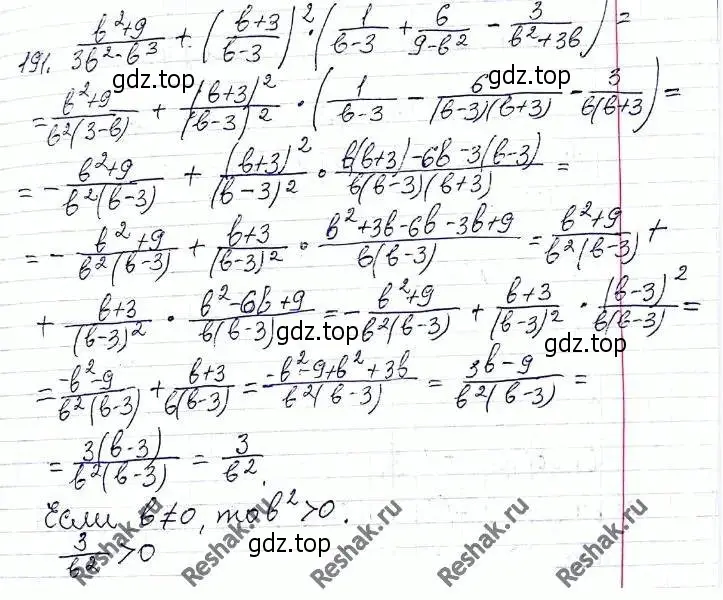 191. \frac{b^2+9}{3b^2-b^3} + \left(\frac{b+3}{b-3}\right)^2 \cdot \left(\frac{1}{b-3} + \frac{6}{9-b^2} - \frac{3}{b^2+3b}\right) =
= \frac{b^2+9}{b^2(3-b)} + \frac{(b+3)^2}{(b-3)^2} \cdot \left(\frac{1}{b-3} - \frac{6}{(b-3)(b+3)} - \frac{3}{b(b+3}\right) =
= -\frac{b^2+9}{b^2(b-3)} + \frac{(b+3)^2}{(b-3)^2} \cdot \frac{b(b+3)-6b-3(b-3)}{b(b-3)(b+3)} =
= -\frac{b^2+9}{b^2(b-3)} + \frac{b+3}{(b-3)^2} \cdot \frac{b^2+3b-6b-3b+9}{b(b-3)} = \frac{b^2+9}{b^2(b-3)} +
+ \frac{b+3}{(b-3)^2} \cdot \frac{b^2-6b+9}{b(b-3)} = -\frac{b^2+9}{b^2(b-3)} + \frac{b+3}{(b-3)^2} \cdot \frac{(b-3)^2}{b(b-3)} =
= \frac{-b^2-9}{b^2(b-3)} + \frac{b+3}{b(b-3)} = \frac{-b^2-9+b^2+3b}{b^2(b-3)} = \frac{3b-9}{b^2(b-3)} =
= \frac{3(b-3)}{b^2(b-3)} = \frac{3}{b^2}.
Если b≠0, то b^2>0.
\frac{3}{b^2}>0
гдз.top
гдз.top
гдз.top
гдз.top
гдз.top
Reshak.ru
Reshak.ru
Reshak.ru
Reshak.ru